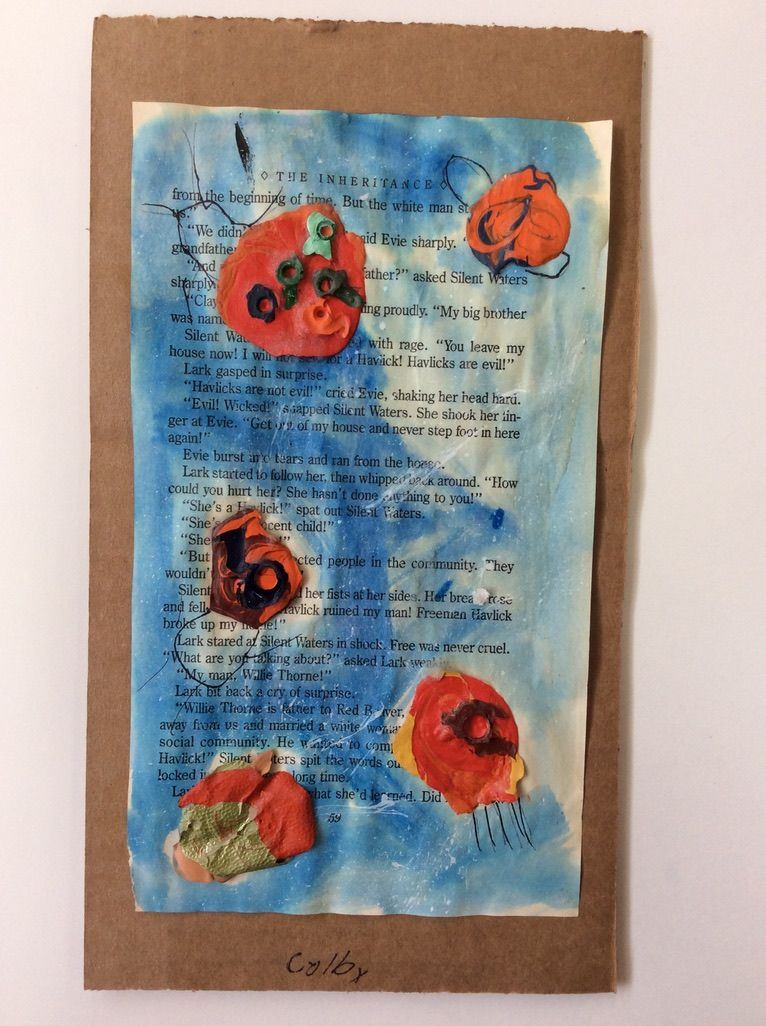 ◇ THE INHERITANCE ◇
from the beginning of time. But the white man
us."
"We said Evie sharply.
grandfather
"And father?" asked Silent Waters
sharply.
"Clay proudly. "My big brother
was
Silent with rage. "You leave my
house now! I will not for a Havlick! Havlicks are evil!"
Lark gasped in surprise.
"Havlicks are not evil!" cried Evie, shaking her head hard.
"Evil! Wicked!" snapped Silent Waters. She shook her fin-
ger at Evie. "Get out of my house and never step foot in here
again!"
Evie burst into tears and ran from the house.
Lark started to follow her, then whipped back around. "How
could you hurt her? She hasn't done anything to you!"
"She's a Havlick!" spat out Silent Waters.
"She's child!"
"She
"But people in the community. They
wouldn't
Silent her fists at her sides. Her breast rose
and fell. Havlick ruined my man! Freeman Havlick
broke up my
Lark stared at Silent Waters in shock. Free was never cruel.
"What are you talking about?" asked Lark weakly.
"My man, Willie Thorne!"
Lark bit back a cry of surprise.
"Willie Thorne is father to Red Beaver,
away from us and married a white woman
social community. He wanted to
Havlick!" Silent Waters spit the words
locked long time.
what she'd learned. Did
59
Colby